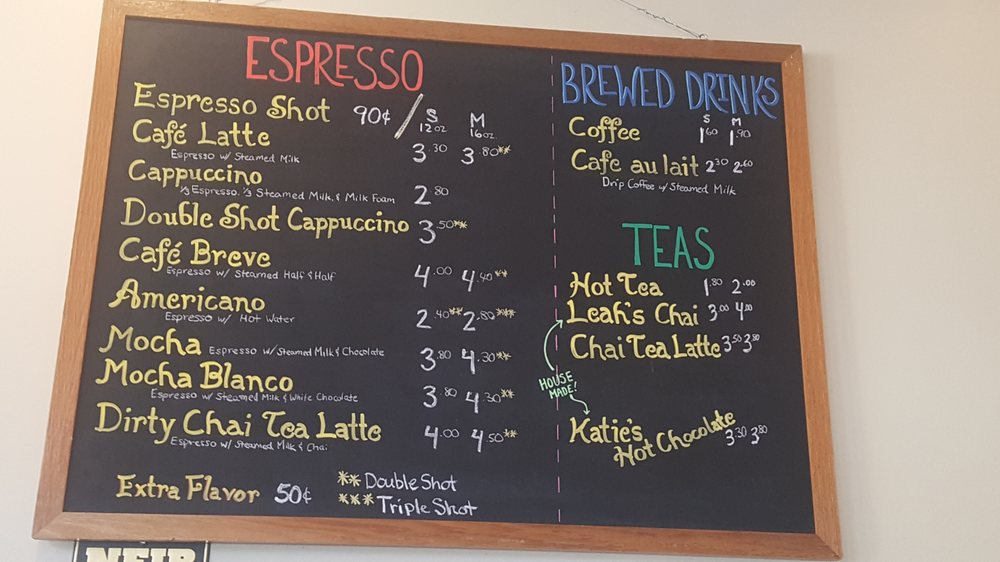 ESPRESSO
Espresso Shot 90¢ / S M
12oz 16oz
Café Latte 3.30 3.80**
Espresso w/ Steamed Milk
Cappuccino 2 80
⅓ Espresso, ⅓ Steamed Milk, & Milk Foam
Double Shot Cappuccino 3.50**
Café Breve 4.00 4.40**
Espresso w/ Steamed Half & Half
Americano 2.40** 2.80***
Espresso w/ Hot Water
Mocha Espresso w/ Steamed Milk & Chocolate 3.80 4.30**
Mocha Blanco 3 80 4.30**
Espresso w/ Steamed Milk & White Chocolate
Dirty Chai Tea Latte 4.00 4.50**
Espresso w/ Steamed Milk & Chai
Extra Flavor 50¢
** Double Shot
*** Triple Shot
BREWED DRINKS
S M
Coffee 1 60 1 90
Cafe au lait 2 30 2 60
Drip Coffee w/ Steamed Milk
TEAS
Hot Tea 1.80 2.00
Leah's Chai 3 00 4 00
Chai Tea Latte 3 50 3 80
HOUSE
MADE!
Katie's
Hot Chocolate 3 30 3 80